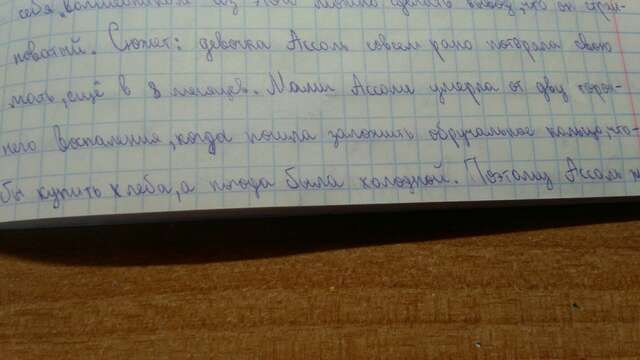 себя „волшебником из этого можно сделать вывод, что он стран-
новатый. Сюжет: девочка Ассоль совсем рано потеряла свою
мать, ещё в 8 месяцев. Мама Ассоль умерла от двусторон-
него воспаления, когда пошла заложить обручальное кольцо, что-
бы купить хлеба, а погода была холодной. Поэтому Ассоль